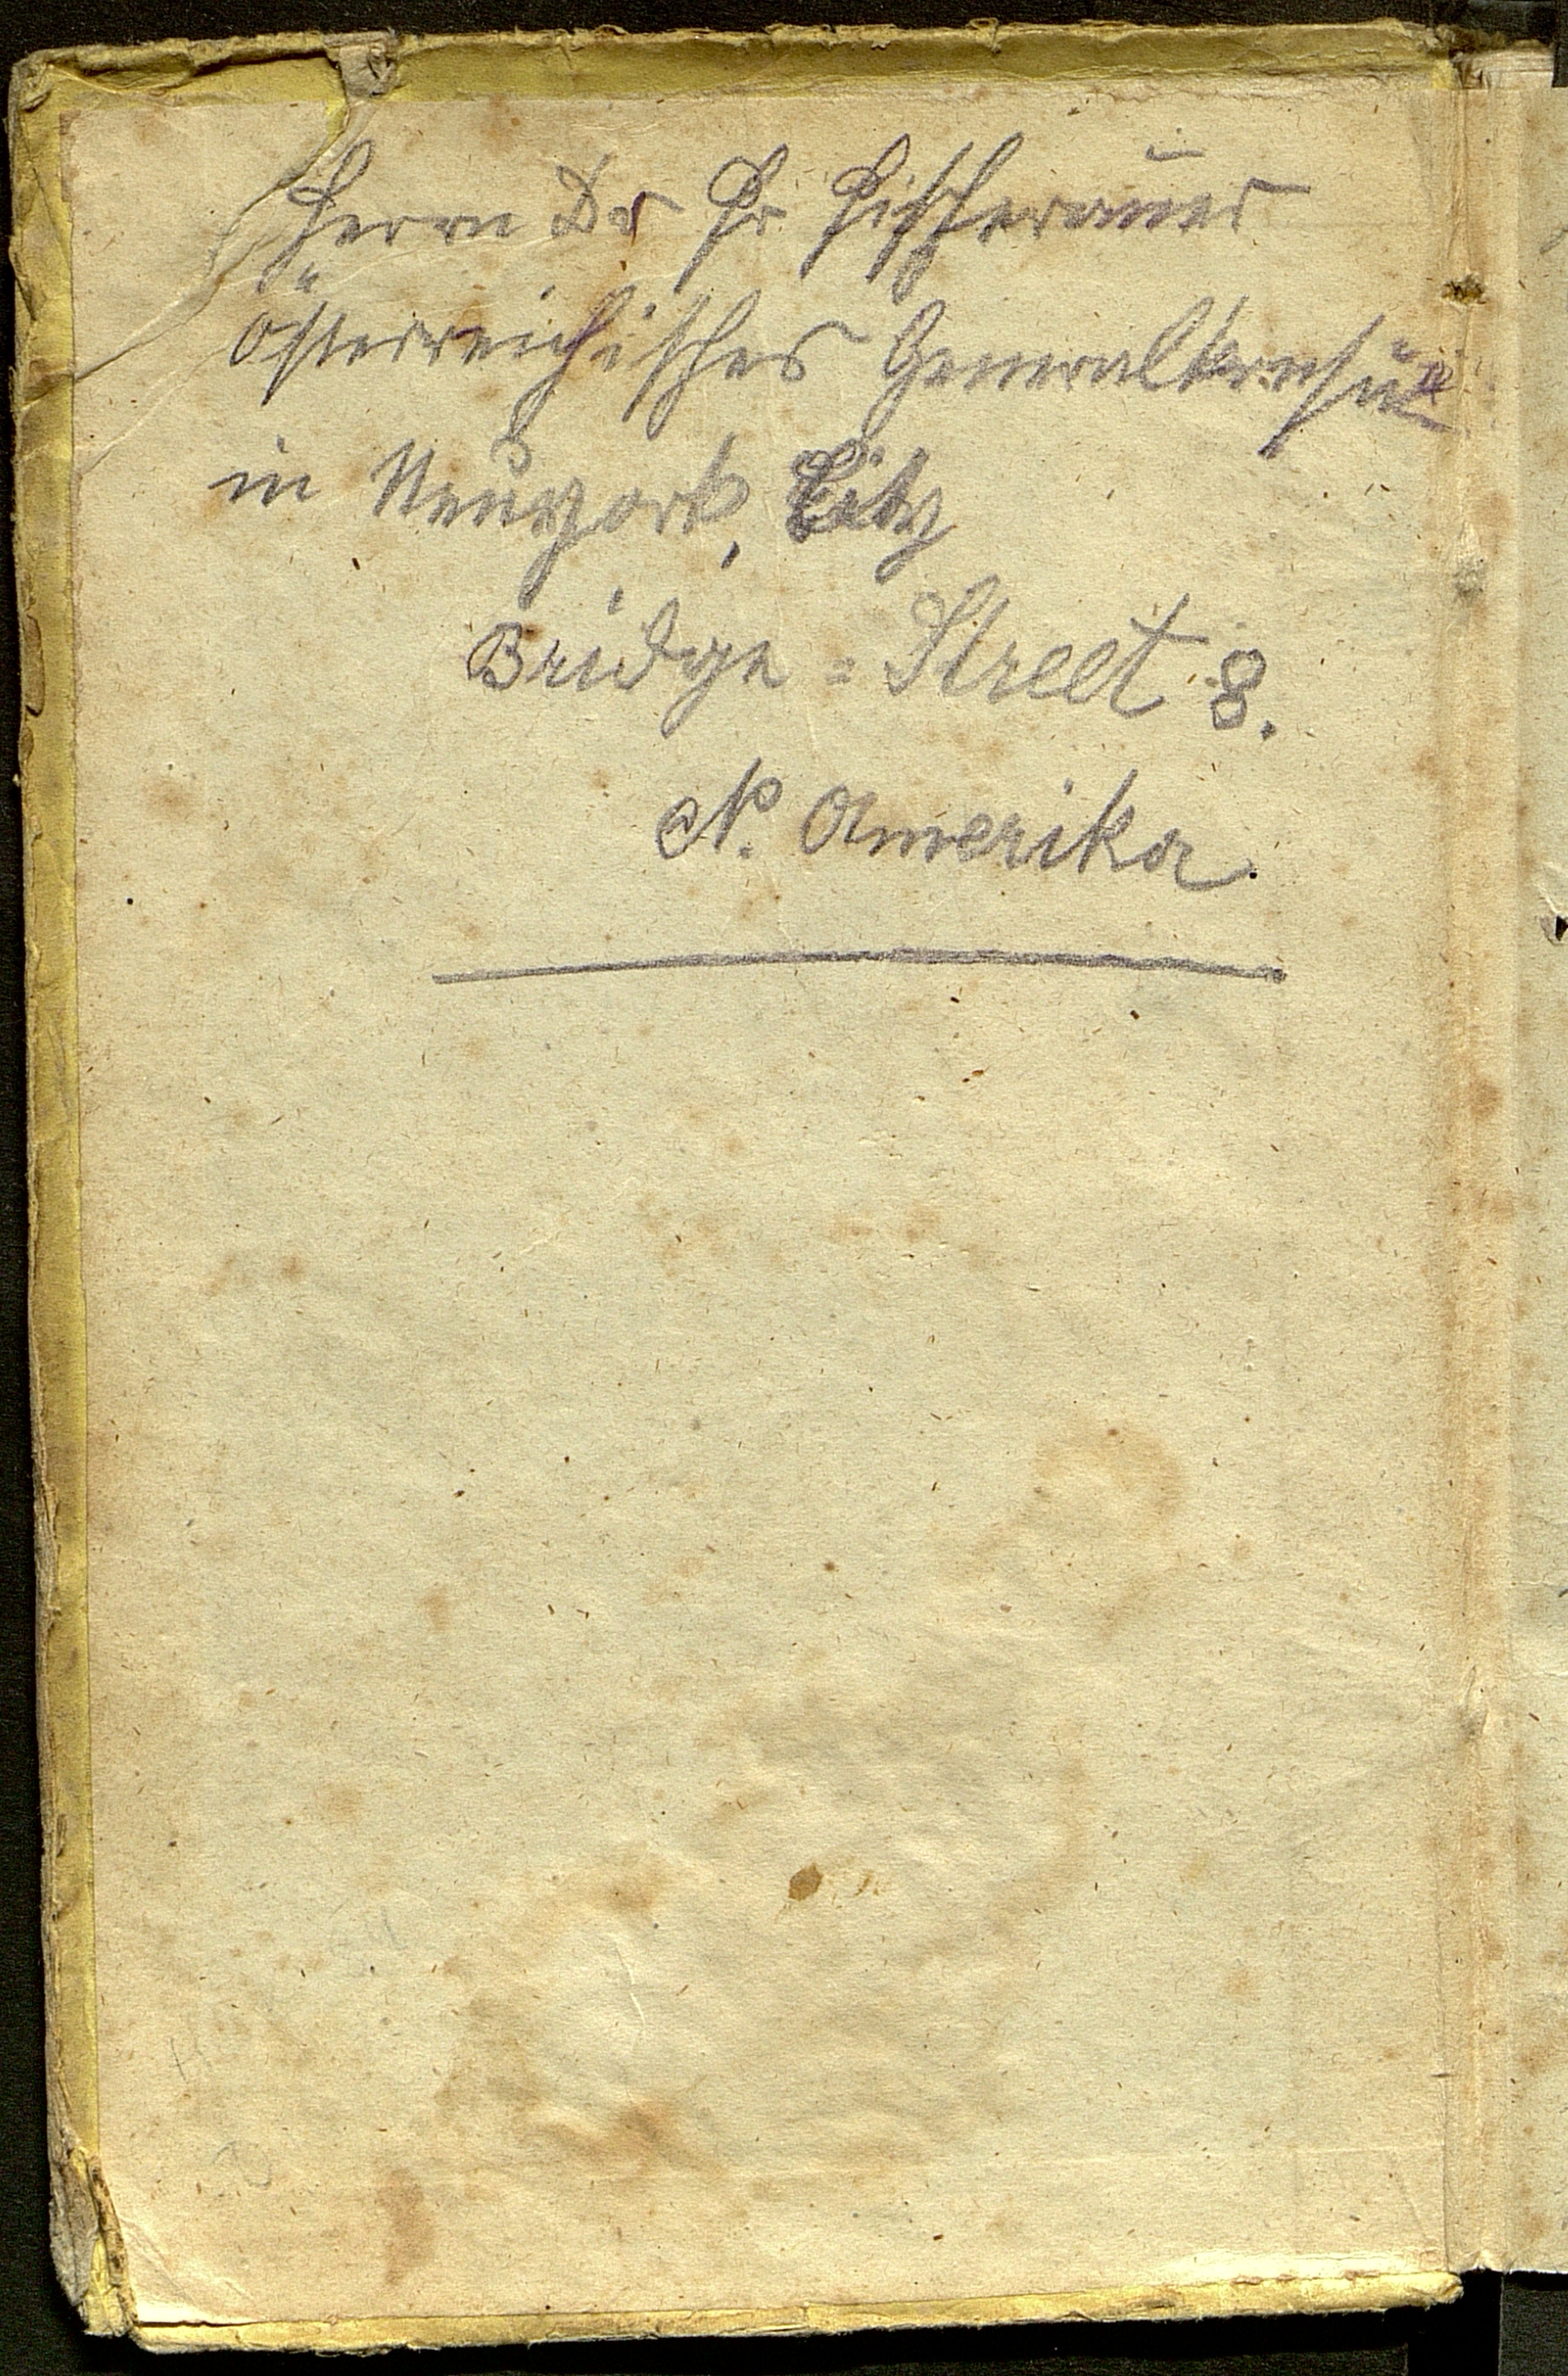 Herrn Dr Fr Fischerauer
Österreichisches Generalkonsulat
in Neuyork, City
Bridge = Street 8.
N. Amerika.